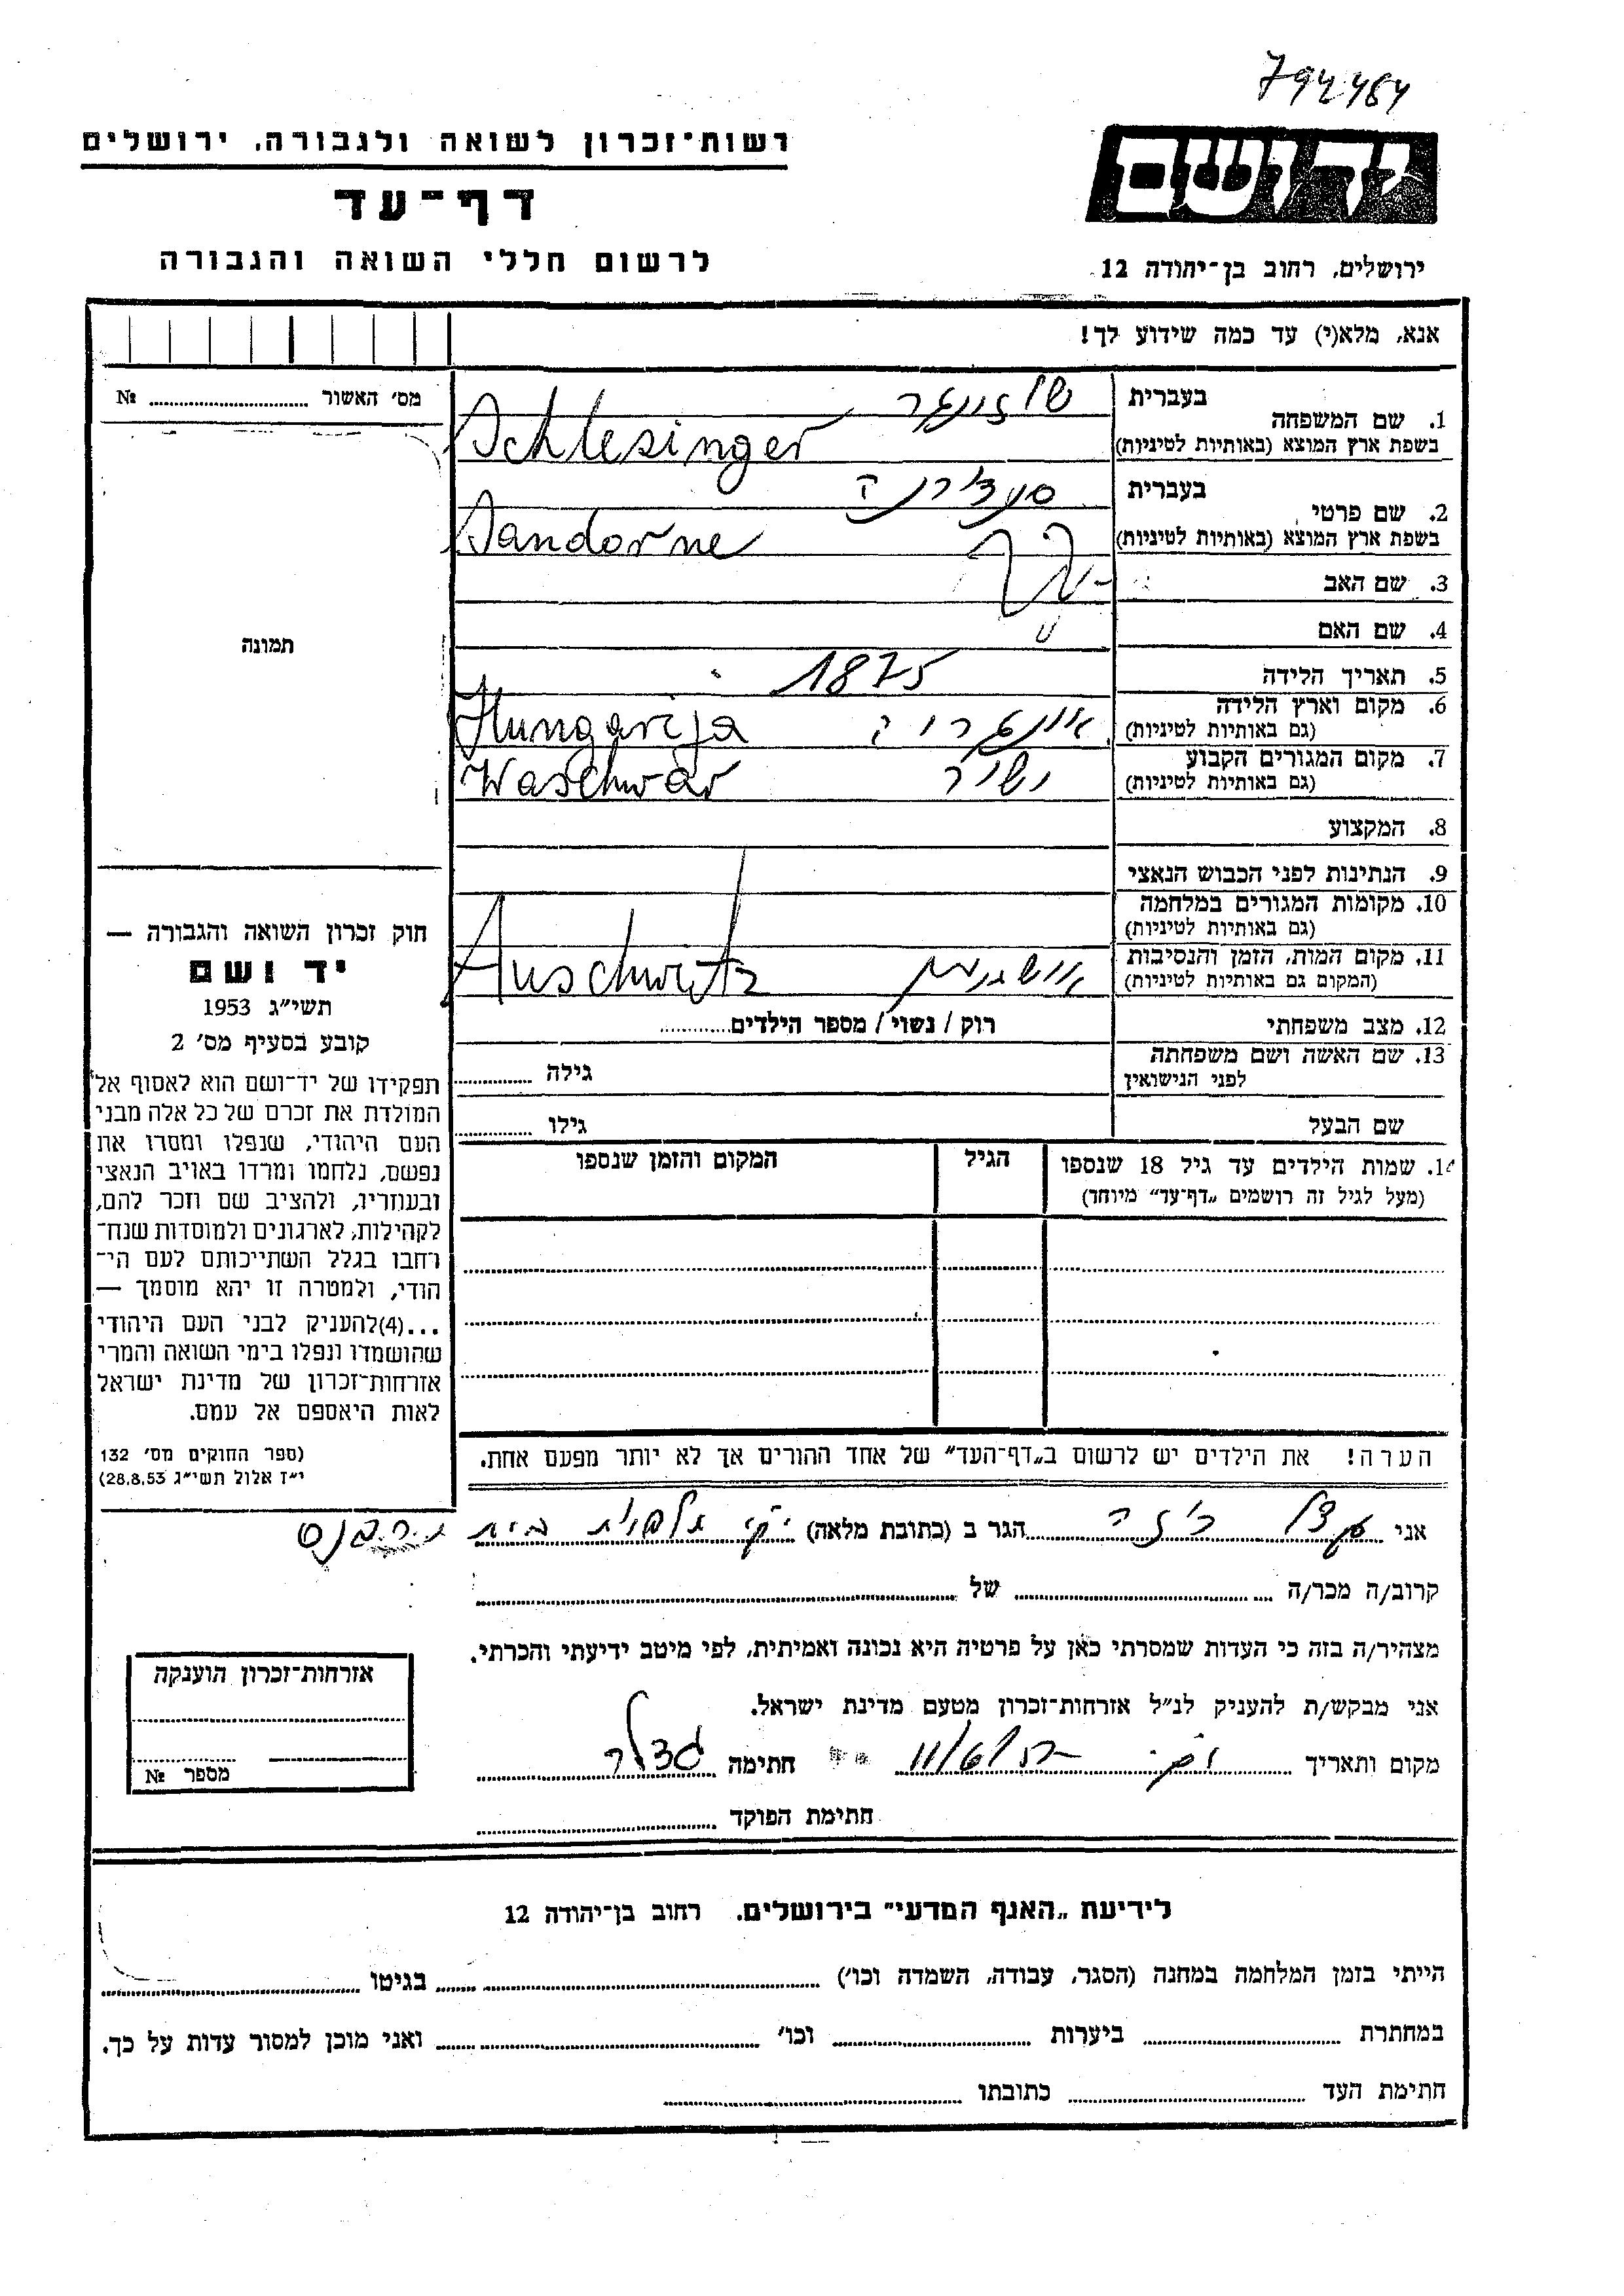 794464
רשות־זכרון לשואה ולגבורה, ירושלים
דף־עד
לרשום חללי השואה והגבורה
יד ושם
ירושלים, רחוב בן־יהודה 12
אנא, מלא(י) עד כמה שידוע לך!
מס׳ האשור ........ №
תמונה
חוק זכרון השואה והגבורה —
יד ושם
תשי״ג 1953
קובע בסעיף מס׳ 2
תפקידו של יד־ושם הוא לאסוף אל
המולדת את זכרם של כל אלה מבני
העם היהודי, שנפלו ומסרו את
נפשם, נלחמו ומרדו באויב הנאצי
ובעוזריו, ולהציב שם וזכר להם,
לקהילות, לארגונים ולמוסדות שנח־
רחבו בגלל השתייכותם לעם הי־
הודי, ולמטרה זו יהא מוסמך —
...(4)להעניק לבני העם היהודי
שהושמדו ונפלו בימי השואה והמרי
אזרחות־זכרון של מדינת ישראל
לאות היאספם אל עמם.
(ספר החוקים מס׳ 132
י״ז אלול תשי״ג 28.8.53)
1. שם המשפחה
בעברית שלזינגר
בשפת ארץ המוצא (באותיות לטיניות) Schlesinger
2. שם פרטי
בעברית
בשפת ארץ המוצא (באותיות לטיניות) Sandorne
3. שם האב
4. שם האם
5. תאריך הלידה 1875
6. מקום וארץ הלידה
(גם באותיות לטיניות) Hungarija
7. מקום המגורים הקבוע
(גם באותיות לטיניות) Waschwar
8. המקצוע
9. הנתינות לפני הכבוש הנאצי
10. מקומות המגורים במלחמה
(גם באותיות לטיניות)
11. מקום המות, הזמן והנסיבות
(המקום גם באותיות לטיניות) Auschwitz
12. מצב משפחתי רוק / נשוי / מספר הילדים........
13. שם האשה ושם משפחתה
לפני הנישואין גילה ........
שם הבעל גילו ........
14. שמות הילדים עד גיל 18 שנספו הגיל המקום והזמן שנספו
(מעל לגיל זה רושמים „דף־עד” מיוחד)
הערה! את הילדים יש לרשום ב„דף־העד” של אחד ההורים אך לא יותר מפעם אחת.
אני הגר ב (כתובת מלאה) בית
קרוב/ה מכר/ה ........ של ........
מצהיר/ה בזה כי העדות שמסרתי כאן על פרטיה היא נכונה ואמיתית, לפי מיטב ידיעתי והכרתי.
אני מבקש/ת להעניק לנ״ל אזרחות־זכרון מטעם מדינת ישראל.
מקום ותאריך חתימה
חתימת הפוקד ........
אזרחות־זכרון הוענקה
מספר №
לידיעת „האגף המדעי” בירושלים. רחוב בן־יהודה 12
הייתי בזמן המלחמה במחנה (הסגר, עבודה, השמדה וכו׳) ........ בגיטו ........
במחתרת ........ ביערות ........ וכו׳ ........ ואני מוכן למסור עדות על כך.
חתימת העד ........ כתובתו ........